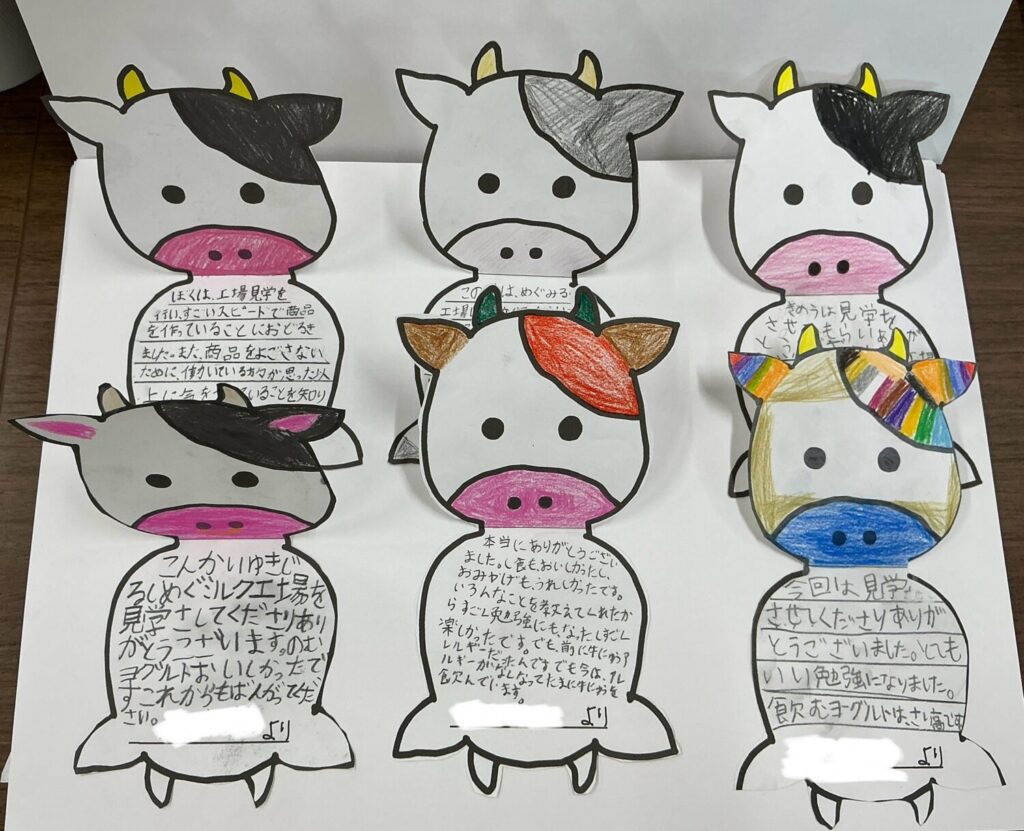 ぼくは、工場見学を
行い、すごいスピードで商品
を作っていることにおどろき
ました。また、商品をよごさない
ために、働いている方々が思った以
上に気を
ていることを知り
この
は、めぐみる
工場
きのうは見学を
させ
もらい
こんかいゆきじ
るしめぐミルク工場を
見学さしてくださりあり
がとうございます。のむ
ヨグルトおいしかったで
すこれからもばんがてくだ
さい。
より
本当にありがとうござい
ました。し食もおいしかったし、
おみやげも、うれしかったです。
いろんなことを教えてくれたか
らすごし勉強にも、なったしすごし
楽しかったです。でも、前に牛にゅうア
レルギーだったんですでも今は、アレ
ルギーがなくなってたまに牛にゅうを
飲んでいます。
より
今回は見学
させてくださりありが
とうございました。とても
いい勉強になりました。
飲むヨーグルトは、さい高です
より